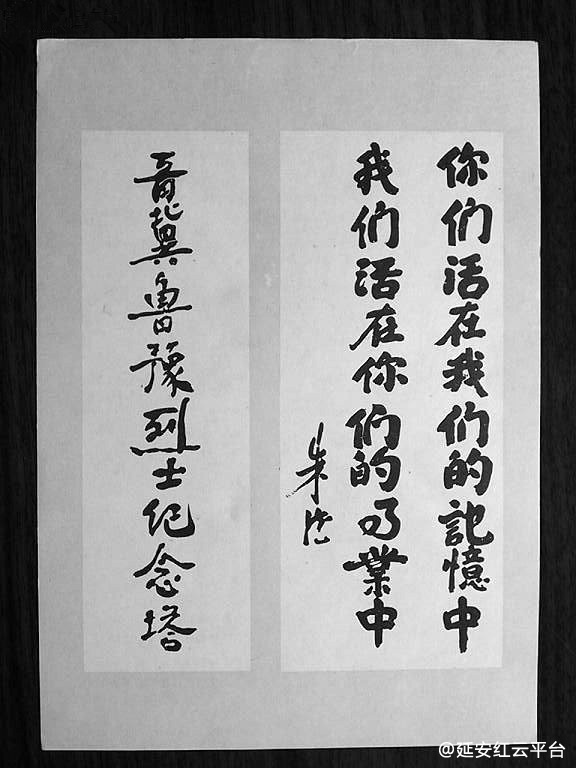 你们活在我们的記憶中
我们活在你们的事業中
朱德
晋冀鲁豫烈士纪念塔
@延安红云平台